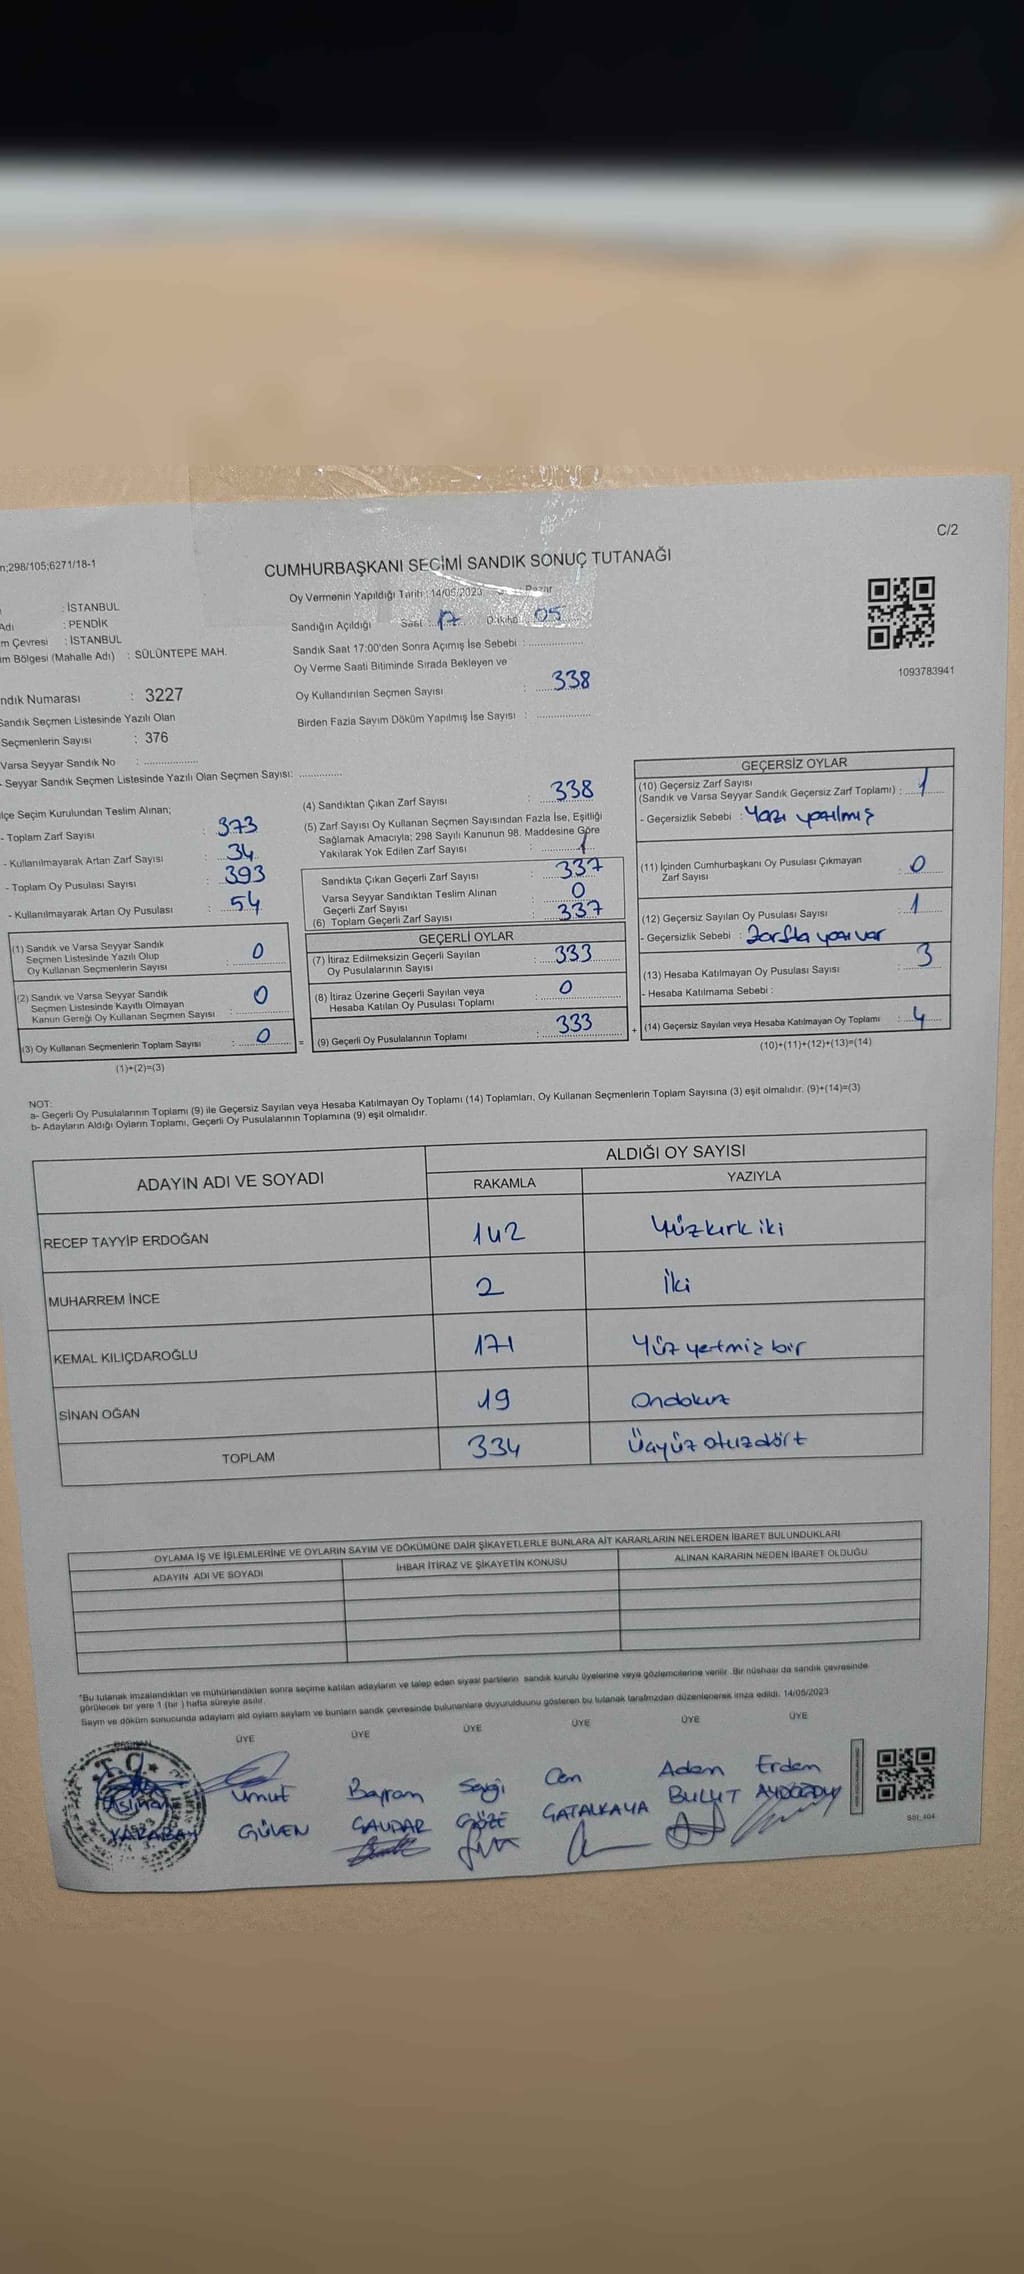 C/2
n;298/105;6271/18-1
CUMHURBAŞKANI SEÇİMİ SANDIK SONUÇ TUTANAĞI
: İSTANBUL
Adı : PENDİK
m Çevresi : İSTANBUL
im Bölgesi (Mahalle Adı) : SÜLÜNTEPE MAH.
Oy Vermenin Yapıldığı Tarih : 14/05/2023 Pazar
Sandığın Açıldığı Saat : 17 Dakika 05
Sandık Saat 17:00'den Sonra Açımış İse Sebebi :
Oy Verme Saati Bitiminde Sırada Bekleyen ve
Oy Kullandırılan Seçmen Sayısı : 338
Birden Fazla Sayım Döküm Yapılmış İse Sayısı :
1093783941
ndık Numarası : 3227
Sandık Seçmen Listesinde Yazılı Olan
Seçmenlerin Sayısı : 376
Varsa Seyyar Sandık No :
- Seyyar Sandık Seçmen Listesinde Yazılı Olan Seçmen Sayısı:
lçe Seçim Kurulundan Teslim Alınan;
- Toplam Zarf Sayısı : 373
- Kullanılmayarak Artan Zarf Sayısı : 34
- Toplam Oy Pusulası Sayısı : 393
- Kullanılmayarak Artan Oy Pusulası : 54
(1) Sandık ve Varsa Seyyar Sandık
Seçmen Listesinde Yazılı Olup
Oy Kullanan Seçmenlerin Sayısı : 0
(2) Sandık ve Varsa Seyyar Sandık
Seçmen Listesinde Kayıtlı Olmayan
Kanun Gereği Oy Kullanan Seçmen Sayısı : 0
(3) Oy Kullanan Seçmenlerin Toplam Sayısı : 0 =
(1)+(2)=(3)
(4) Sandıktan Çıkan Zarf Sayısı : 338
(5) Zarf Sayısı Oy Kullanan Seçmen Sayısından Fazla İse, Eşitliği
Sağlamak Amacıyla; 298 Sayılı Kanunun 98. Maddesine Göre
Yakılarak Yok Edilen Zarf Sayısı : 1
Sandıkta Çıkan Geçerli Zarf Sayısı : 337
Varsa Seyyar Sandıktan Teslim Alınan
Geçerli Zarf Sayısı : 0
(6) Toplam Geçerli Zarf Sayısı : 337
GEÇERLİ OYLAR
(7) İtiraz Edilmeksizin Geçerli Sayılan
Oy Pusulalarının Sayısı : 333
(8) İtiraz Üzerine Geçerli Sayılan veya
Hesaba Katılan Oy Pusulası Toplamı : 0
(9) Geçerli Oy Pusulalarının Toplamı : 333 +
GEÇERSİZ OYLAR
(10) Geçersiz Zarf Sayısı
(Sandık ve Varsa Seyyar Sandık Geçersiz Zarf Toplamı) : 1
- Geçersizlik Sebebi : Yazı yazılmış
(11) İçinden Cumhurbaşkanı Oy Pusulası Çıkmayan
Zarf Sayısı : 0
(12) Geçersiz Sayılan Oy Pusulası Sayısı : 1
- Geçersizlik Sebebi : Zarfta yazı var
(13) Hesaba Katılmayan Oy Pusulası Sayısı : 3
- Hesaba Katılmama Sebebi :
(14) Geçersiz Sayılan veya Hesaba Katılmayan Oy Toplamı : 4
(10)+(11)+(12)+(13)=(14)
NOT:
a- Geçerli Oy Pusulalarının Toplamı (9) ile Geçersiz Sayılan veya Hesaba Katılmayan Oy Toplamı (14) Toplamları, Oy Kullanan Seçmenlerin Toplam Sayısına (3) eşit olmalıdır. (9)+(14)=(3)
b- Adayların Aldığı Oyların Toplamı, Geçerli Oy Pusulalarının Toplamına (9) eşit olmalıdır.
ADAYIN ADI VE SOYADI ALDIĞI OY SAYISI
RAKAMLA YAZIYLA
RECEP TAYYİP ERDOĞAN 142 Yüzkırk iki
MUHARREM İNCE 2 İki
KEMAL KILIÇDAROĞLU 171 Yüz yetmiz bir
SİNAN OĞAN 19 Ondokuz
TOPLAM 334 Üçyüz otuzdört
OYLAMA İŞ VE İŞLEMLERİNE VE OYLARIN SAYIM VE DÖKÜMÜNE DAİR ŞİKAYETLERLE BUNLARA AİT KARARLARIN NELERDEN İBARET BULUNDUKLARI
ADAYIN ADI VE SOYADI İHBAR İTİRAZ VE ŞİKAYETİN KONUSU ALINAN KARARIN NEDEN İBARET OLDUĞU
*Bu tutanak imzalandıktan ve mühürlendikten sonra seçime katılan adayların ve talep eden siyasi partilerin sandık kurulu üyelerine veya gözlemcilerine verilir. Bir nüshası da sandık çevresinde
görülecek bir yere 1 (bir ) hafta süreyle asılır.
Sayım ve döküm sonucunda adayların ald oyların sayların ve bunların sandk çevresinde bulunanlara duyurulduunu gösteren bu tutanak tarafmzdan düzenlenerek imza edildi. 14/05/2023
BAŞKAN ÜYE ÜYE ÜYE ÜYE ÜYE ÜYE
Aslıhan Umut Bayram Sevgi Cen Adem Erdem
KARABAY GÜVEN GÖZE ÇATALKAYA BULUT
T.C.